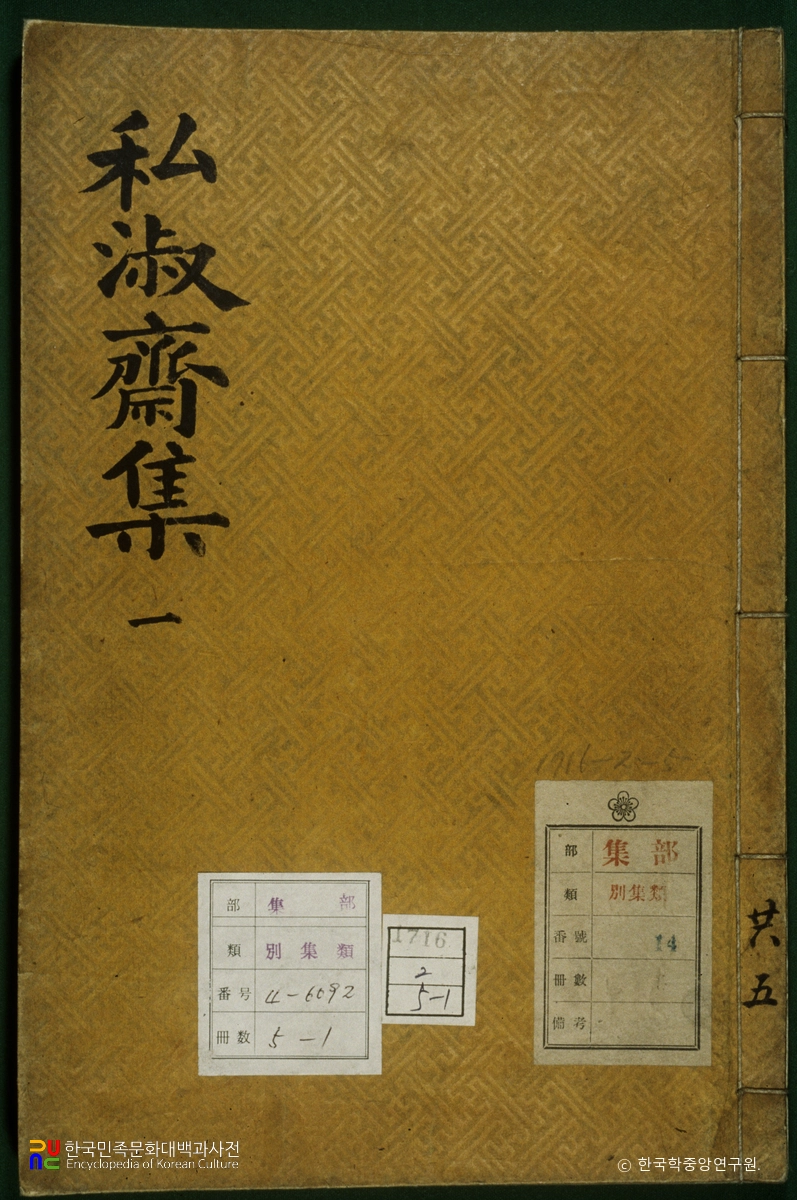 私淑齋集 一
共五
1716-2-5
部 集部
類 別集類
番號 14
冊數
備考
部 集部
類 別集類
番号 4-6092
冊数 5-1
1716
2
5-1
한국민족문화대백과사전
Encyclopedia of Korean Culture
© 한국학중앙연구원.